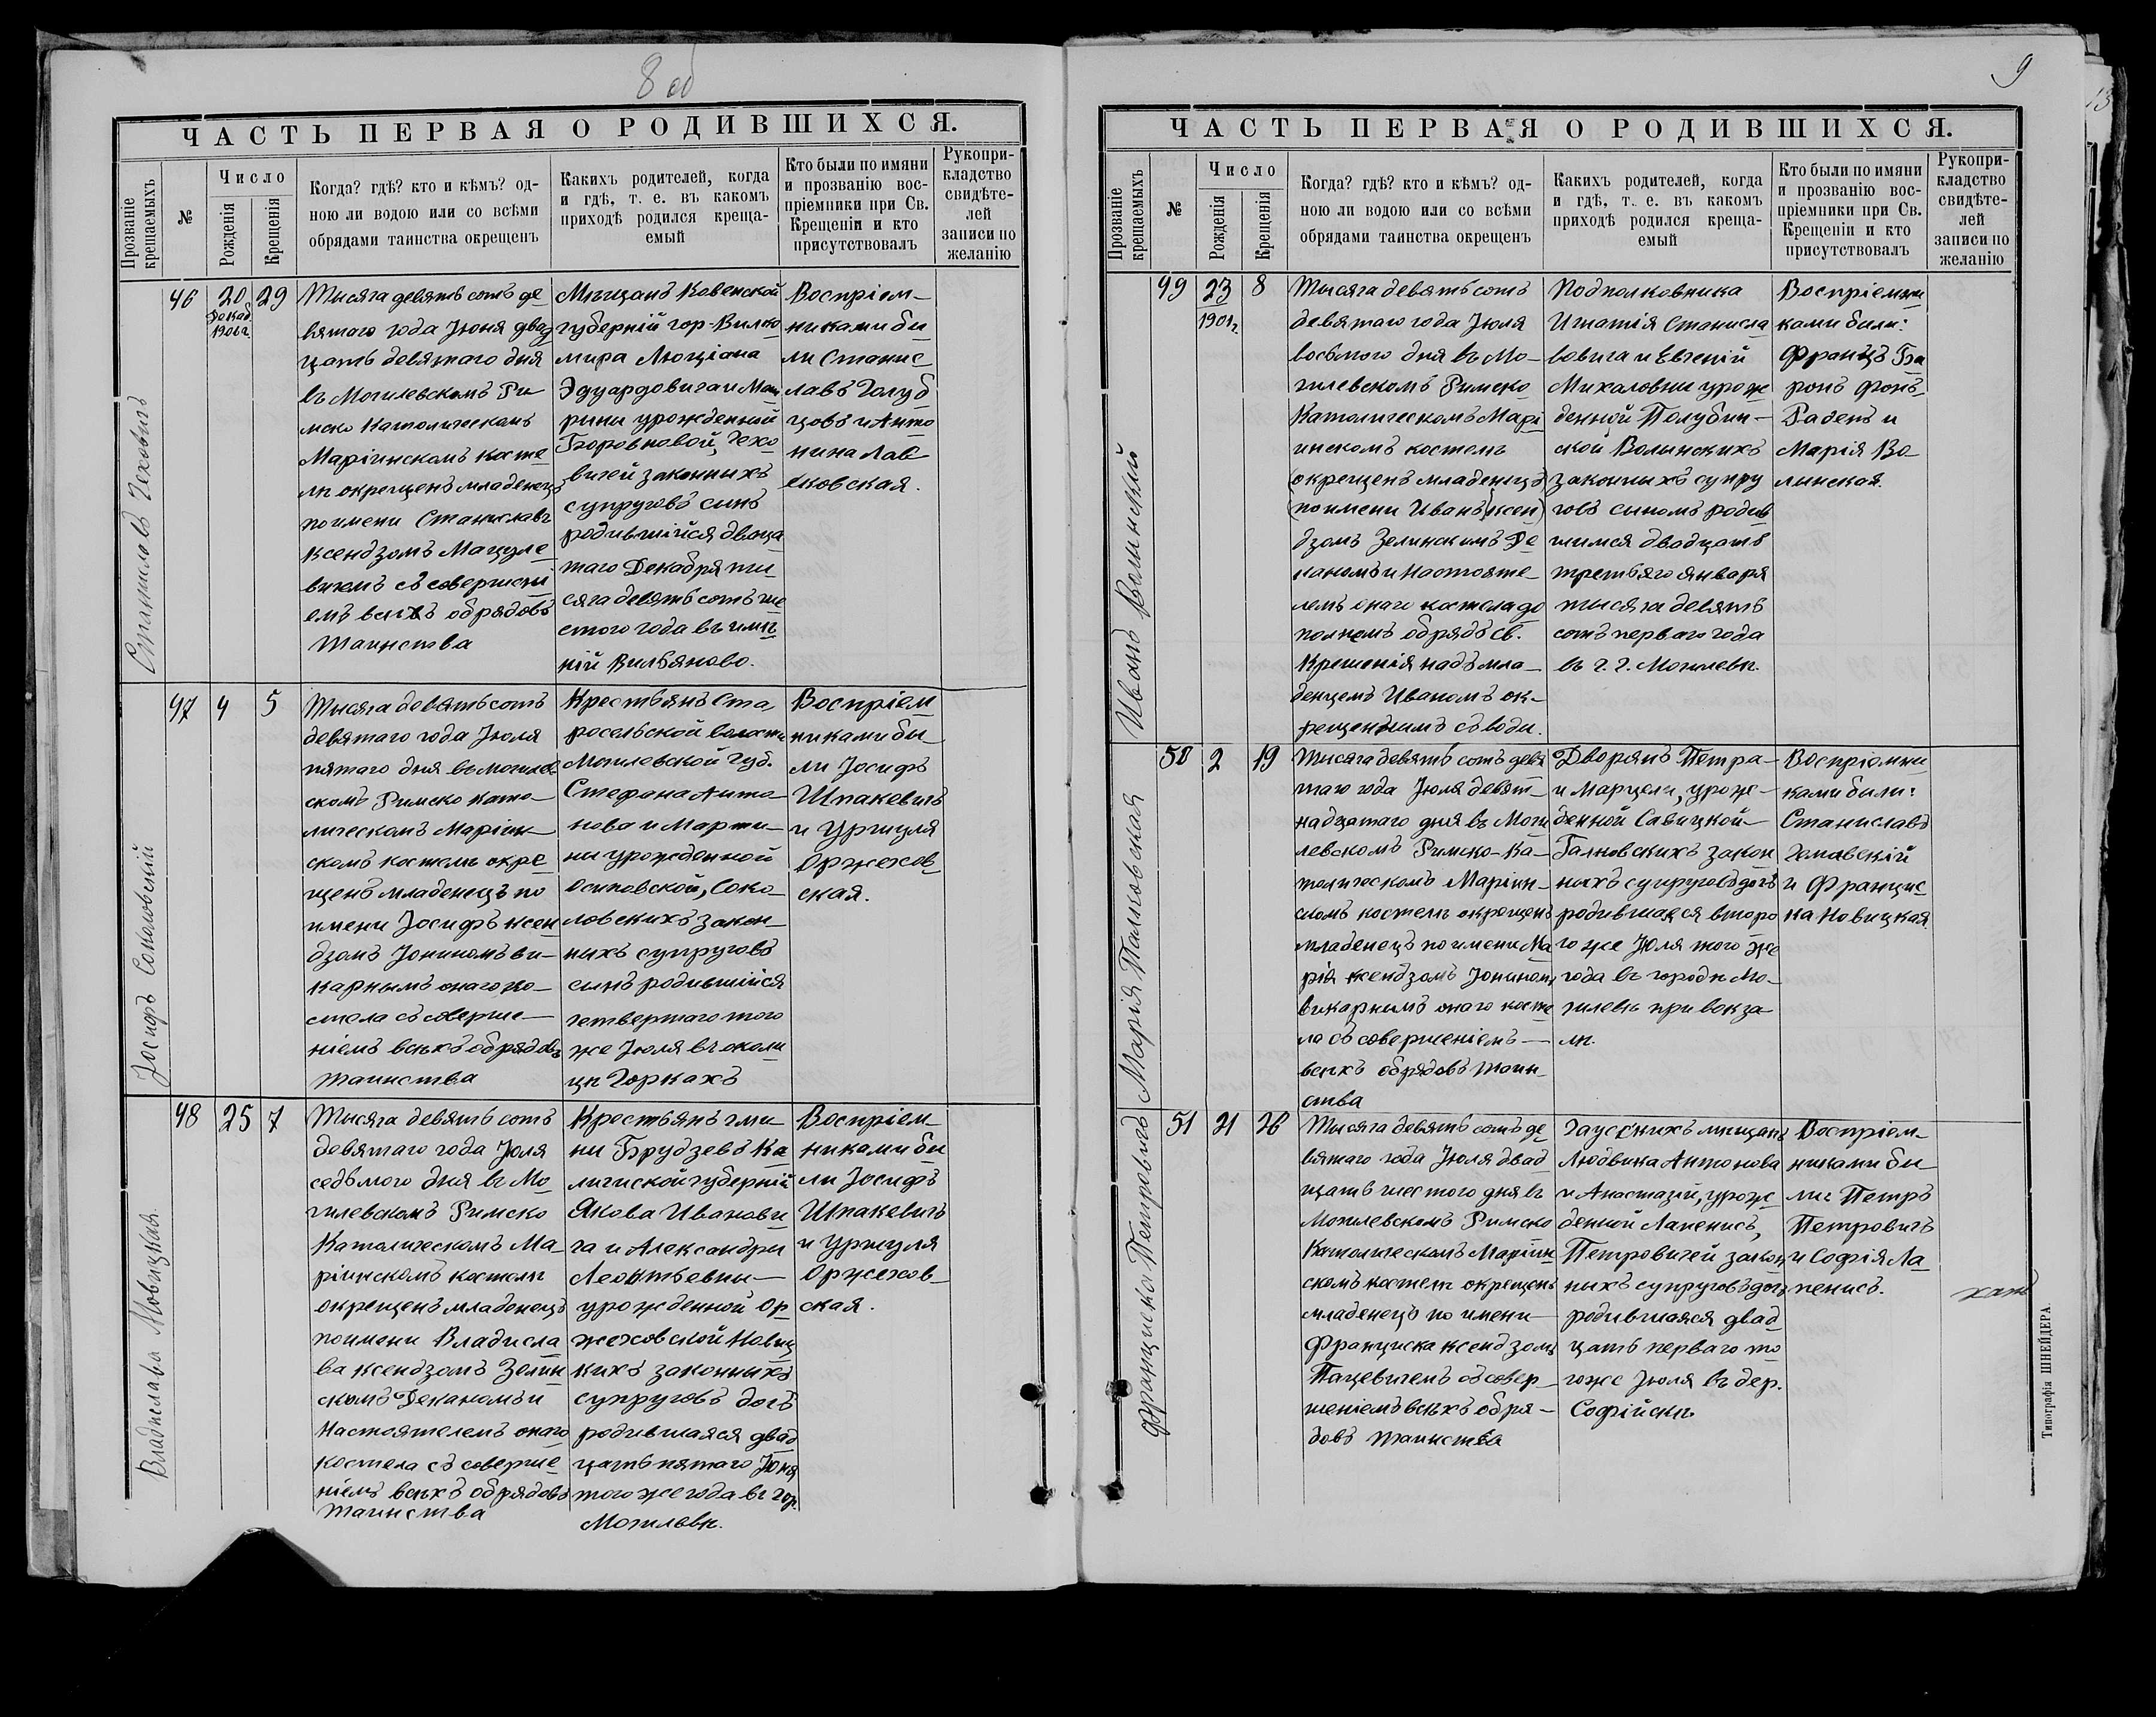 8 об
ЧАСТЬ ПЕРВАЯ О РОДИВШИХСЯ.
Прозваніе крещаемыхъ
№
Число
Рожденія
Крещенія
Когда? гдѣ? кто и кѣмъ? од-
ною ли водою или со всѣми
обрядами таинства окрещенъ
Какихъ родителей, когда
и гдѣ, т. е. въ какомъ
приходѣ родился креща-
емый
Кто были по имяни
и прозванію вос-
пріемники при Св.
Крещеніи и кто
присутствовалъ
Рукопри-
кладство
свидѣте-
лей
записи по
желанію
Станиславъ Чеховичъ
46
20
Декаб.
1906 г.
29
Тысяча девятьсотъ де
вятаго года Юня двад
цать девятаго дня
въ Могилевскомъ Ри
мско Католическомъ
Маріинскомъ косте
лѣ окрещенъ младенецъ
по имени Станиславъ
ксендзомъ Мацуле
вичемъ съ совершені
емъ всѣхъ обрядовъ
Таинства
Мѣщанъ Ковенской
губерніи гор. Вилко
мира Люціана
Эдуардовича и Мат
рини урожденной
Боровковой, Чехо
вичей законныхъ
супруговъ сынъ
родившійся двадца
таго Декабря ты
сяча девятьсотъ ше
стого года въ имѣ
ніи Вильяново.
Воспріем-
никами бы
ли Станис
лавъ Голуб
цовъ и Анто
нина Лав
ковская.
Іосифъ Соколовскій
47
4
5
Тысяча девятьсотъ
девятаго года Юля
пятаго дня въ Могилев
скомъ Римско Като-
лическомъ Маріин-
скомъ костелѣ окре
щенъ младенецъ по
имени Іосифъ ксен
дзомъ Іониномъ ви-
карнымъ онаго ко-
стела съ соверше-
ніемъ всѣхъ обрядовъ
таинства
Крестьянъ Ста,
росельской волости
Могилевской губ.
Стефана Анто-
нова и Марти-
ны урожденной
Осиповской, Соко-
ловскихъ закон-
ныхъ супруговъ
сынъ родившійся
четвертаго того
же Юля въ околи
цѣ Горкахъ
Воспріем
никами бы-
ли Іосифъ
Шпакевичъ
и Уршуля
Оржехов
ская.
Владислава Новицкая.
48
25
7
Тысяча девятьсотъ
девятаго года Юля
седьмого дня въ Мо
гилевскомъ Римско
Католическомъ Ма-
ріинскомъ костелѣ
окрещенъ младенецъ
по имени Владисла
ва ксендзомъ Зелин
скомъ Деканомъ и
Настоятелемъ онаго
костела съ соверше
ніемъ всѣхъ обрядовъ
таинства
Крестьянъ гми-
ны Брудзевъ Ка
лишской губерніи
Якова Иванови
ча и Александры
Леонтьевны-
урожденной Ор
жеховской Новиц
кихъ законныхъ
супруговъ дочь
родившаяся двад
цать пятаго Юня
того же года въ гор.
Могилевѣ.
Воспріем-
никами бы
ли Іосифъ
Шпакевичъ
и Уршуля
Оржехов-
ская.
9
13
ЧАСТЬ ПЕРВАЯ О РОДИВШИХСЯ.
Прозваніе крещаемыхъ
№
Число
Рожденія
Крещенія
Когда? гдѣ? кто и кѣмъ? од-
ною ли водою или со всѣми
обрядами таинства окрещенъ
Какихъ родителей, когда
и гдѣ, т. е. въ какомъ
приходѣ родился креща-
емый
Кто были по имяни
и прозванію вос-
пріемники при Св.
Крещеніи и кто
присутствовалъ
Рукопри-
кладство
свидѣте-
лей
записи по
желанію
Иванъ Волынский
49
23
1901 г.
8
Тысяча девятьсотъ
девятаго года Юля
восьмого дня въ Мо-
гилевскомъ Римско
Католическомъ Марі
инскомъ костелѣ
(окрещенъ младенецъ)
(по имени Иванъ) (ксен)
дзомъ Зелинскимъ Де
каномъ и Настояте-
лемъ онаго костела до
полнемъ обрядъ св.
Крещенія надъ мла-
денцемъ Иваномъ ок-
рещеннымъ съ воды.
Подполковника
Игнатія Станисла
вовича и Евгеній
Михаловны урож
денной Полубин-
ской Волынскихъ
законныхъ супру
говъ сыномъ родив
шимся двадцать
третьяго января
тысяча девять
сотъ перваго года
въ г. г. Могилевѣ.
Воспріемни
ками были:
Францъ Ба
ронъ фонъ
Раденъ и
Марія Во
лынская.
Марія Галковская
50
2
19
Тысяча девятьсотъ девя
таго года Юля девят-
надцатаго дня въ Моги
левскомъ Римско-Ка-
толическомъ Маріин-
скомъ костелѣ окрещенъ
младенецъ по имени Ма
рія ксендзомъ Іонином,
викарнымъ онаго косте
ла съ совершеніемъ-
всѣхъ обрядовъ таин-
ства
Дворянъ Петра-
и Марцели, урож-
денной Савицкой-
Галковскихъ закон
ныхъ супруговъ дочь
родившаяся второ
го же Юля того же
года въ городѣ Мо-
гилевѣ при вокза
лѣ.
Воспріемни
ками были:
Станиславъ
и Францис
ка Новицкая
Франциска Петровичъ
51
21
26
Тысяча девятьсотъ де
вятаго года Юля двад
цать шестого дня въ
Могилевскомъ Римско
Католическомъ Маріин
скомъ костелѣ окрещенъ
младенецъ по имени
Франциска ксендзомъ
Пацевичемъ съ совер-
шеніемъ всѣхъ обря-
довъ таинства
Гаускихъ мѣщанъ
Людвика Антонова
и Анастазіи, урож
денной Лапенисъ,
Петровичей закон
ныхъ супруговъ дочь
родившаяся двад
цать перваго то
гоже Юля въ дер.
Софійскѣ.
Воспріем-
никами бы-
ли Петръ
Петровичъ
и Софія Ла
пенисъ.
Типографія ШНЕЙДЕРА.